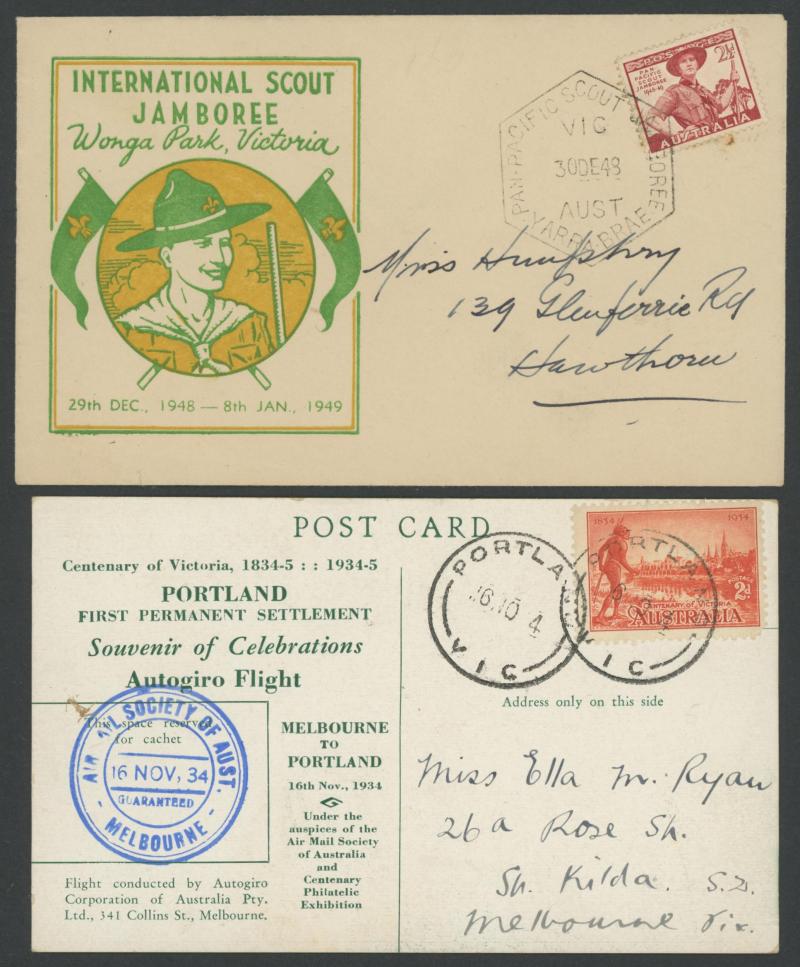 INTERNATIONAL SCOUT
JAMBOREE
Wonga Park, Victoria
29th DEC., 1948 — 8th JAN., 1949
PAN-PACIFIC SCOUT JAMBOREE
VIC
30DE48
AUST
YARRA-BRAE
POSTAGE
2½d
PAN
PACIFIC
SCOUT
JAMBOREE
1948-49
AUSTRALIA
Miss Humphry
139 Glenferrie Rd
Hawthorn
POST CARD
Centenary of Victoria, 1834-5 : : 1934-5
PORTLAND
FIRST PERMANENT SETTLEMENT
Souvenir of Celebrations
Autogiro Flight
This space reserved
for cachet
AIR MAIL SOCIETY OF AUST.
16 NOV, 34
GUARANTEED
- MELBOURNE -
MELBOURNE
TO
PORTLAND
16th Nov., 1934
Under the
auspices of the
Air Mail Society
of Australia
and
Centenary
Philatelic
Exhibition
Flight conducted by Autogiro
Corporation of Australia Pty.
Ltd., 341 Collins St., Melbourne.
PORTLAND
VIC
PORTLAND
VIC
1834 1934
POSTAGE
2d
CENTENARY OF VICTORIA
AUSTRALIA
Address only on this side
Miss Ella M. Ryan
26a Rose St.
St. Kilda. S.2.
Melbourne Vic.